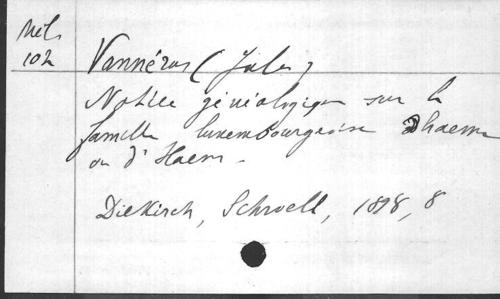 Mél.
102
Vannérus (Jules)
Notice généalogique sur la
famille luxembourgeoise Dhaem
ou d'Haem.
Diekirch, Schroell, 1898, 8